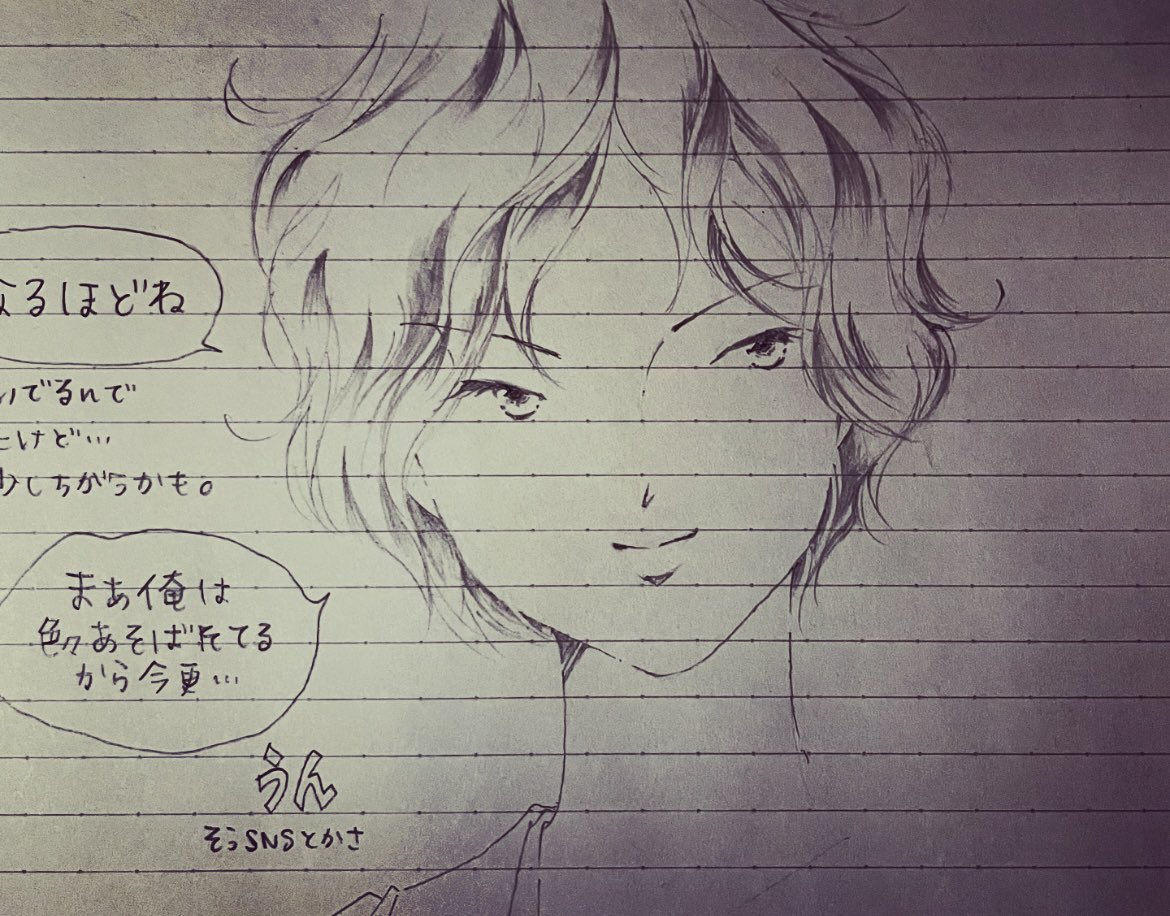 なるほどね
いでるんで
たけど…
少しちがうかも。
まあ俺は
色々あそばれてる
から今更…
うん
そうSNSとかさ